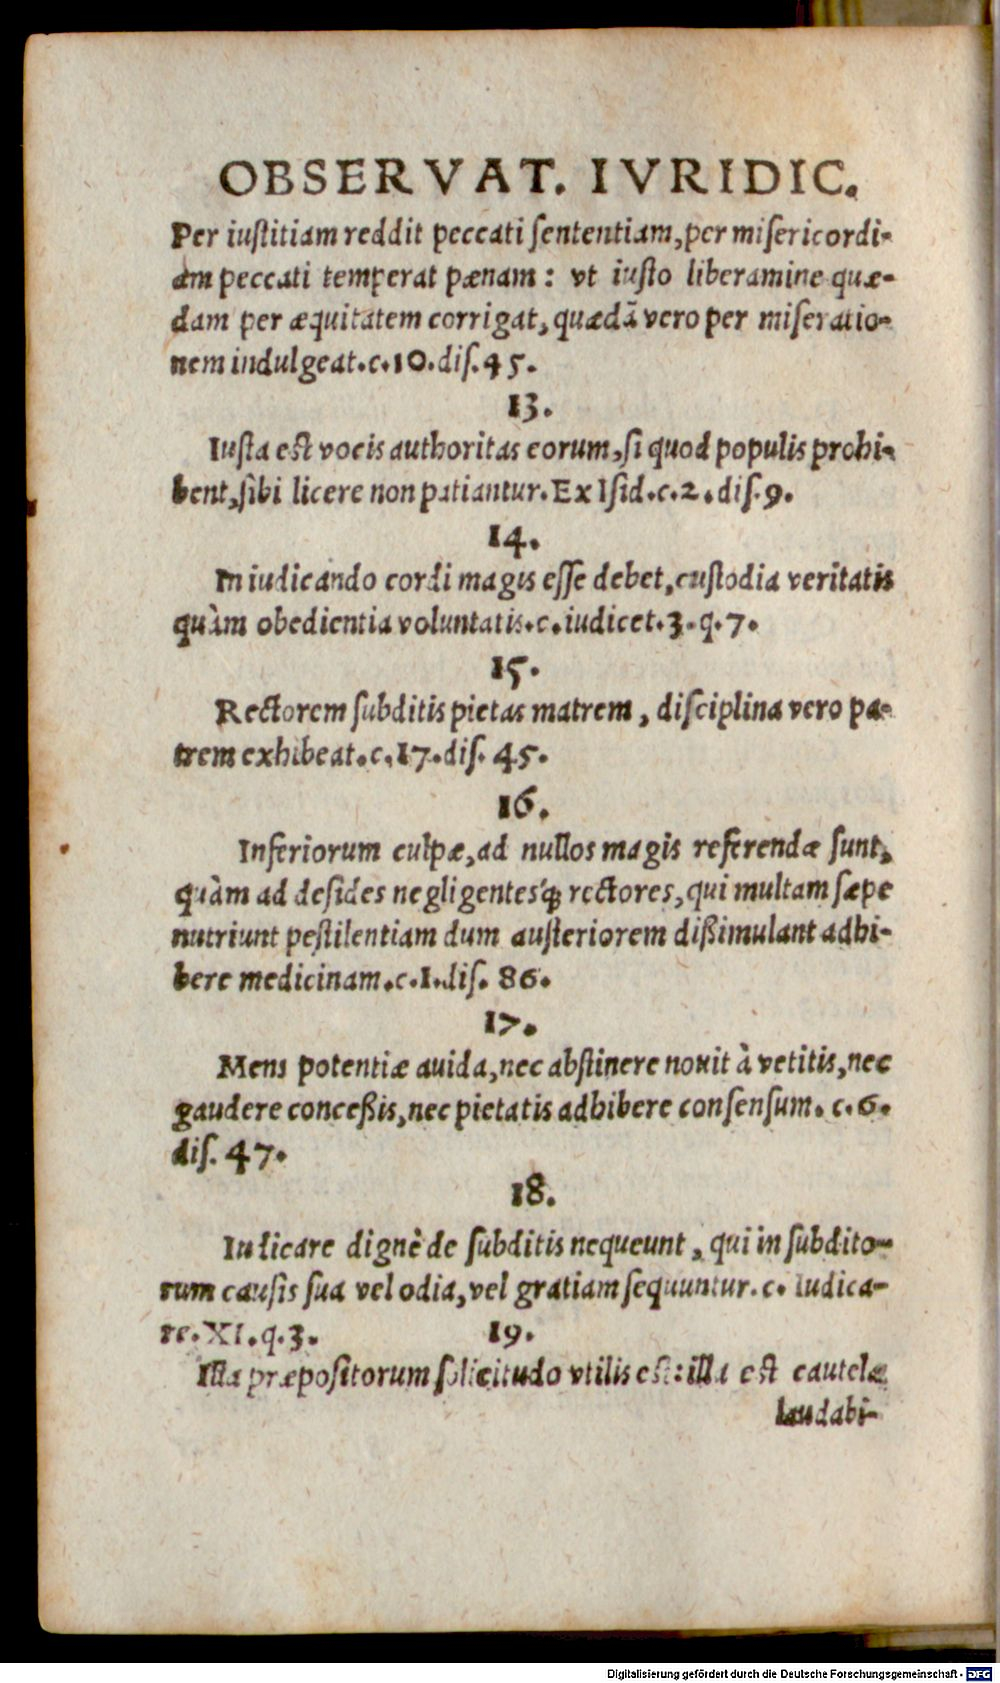 OBSERVAT. IVRIDIC.
Per iustitiam reddit peccati sententiam, per misericordi-
am peccati temperat pænam: vt iusto liberamine quæ-
dam per æquitatem corrigat, quædã vero per miseratio-
nem indulgeat. c. 10. dis. 45.
13.
Iusta est vocis authoritas eorum, si quod populis prohi-
bent, sibi licere non patiantur. Ex Isid. c. 2. dis. 9.
14.
In iudicando cordi magis esse debet, custodia veritatis
quàm obedientia voluntatis. c. iudicet. 3. q. 7.
15.
Rectorem subditis pietas matrem, disciplina vero pa-
trem exhibeat. c. 17. dis. 45.
16.
Inferiorum culpæ, ad nullos magis referendæ sunt,
quàm ad desides negligentesq́; rectores, qui multam sæpe
nutriunt pestilentiam dum austeriorem dißimulant adhi-
bere medicinam. c. 1. dis. 86.
17.
Mens potentiæ auida, nec abstinere nouit à vetitis, nec
gaudere conceßis, nec pietatis adhibere consensum. c. 6.
dis. 47.
18.
Iudicare dignè de subditis nequeunt, qui in subdito-
rum causis sua vel odia, vel gratiam sequuntur. c. Iudica-
re. XI. q. 3. 19.
Illa præpositorum solicitudo vtilis est: illa est cautela
laudabi-
Digitalisierung gefördert durch die Deutsche Forschungsgemeinschaft - DFG